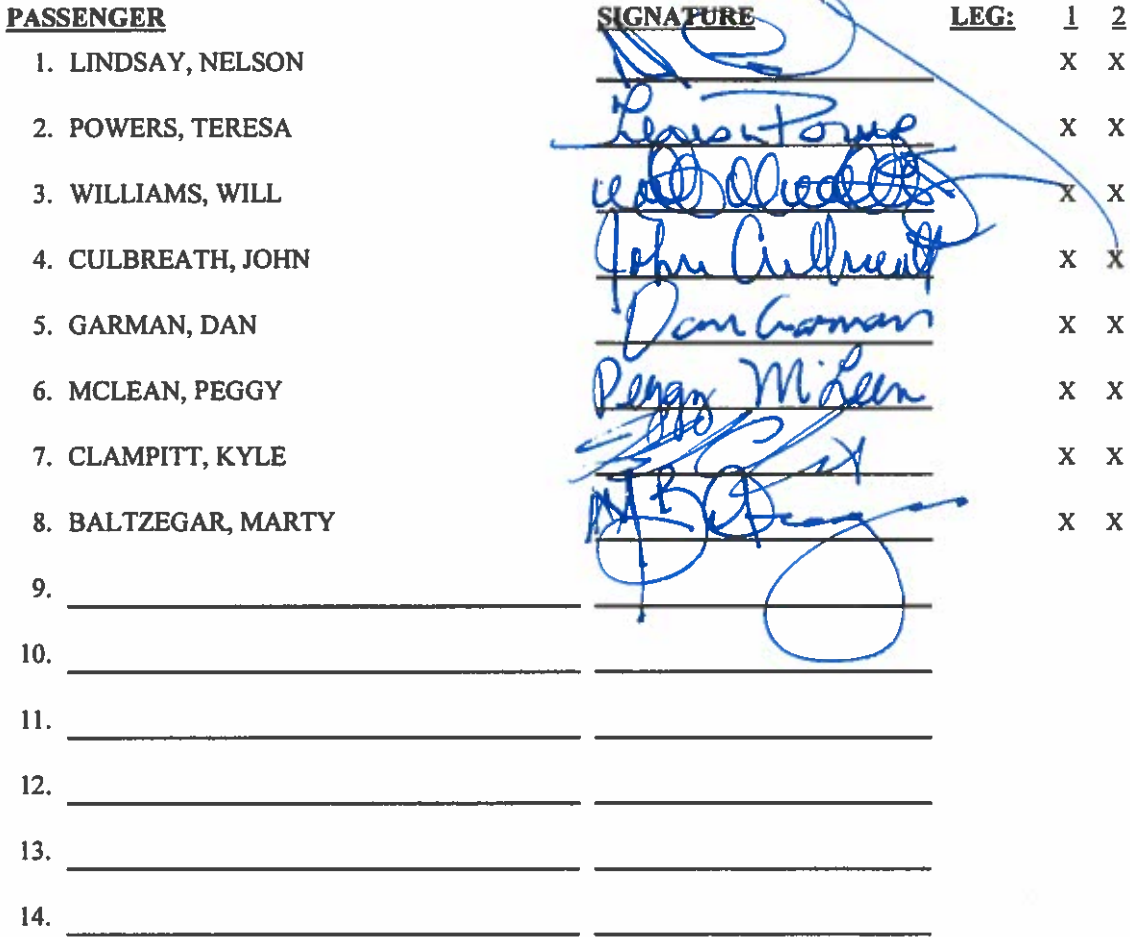 PASSENGER SIGNATURE LEG: 1 2
1. LINDSAY, NELSON X X
2. POWERS, TERESA Teresa Powers X X
3. WILLIAMS, WILL Will X X
4. CULBREATH, JOHN John Culbreath X X
5. GARMAN, DAN Dan Garman X X
6. MCLEAN, PEGGY Peggy McLean X X
7. CLAMPITT, KYLE X X
8. BALTZEGAR, MARTY X X
9.
10.
11.
12.
13.
14.